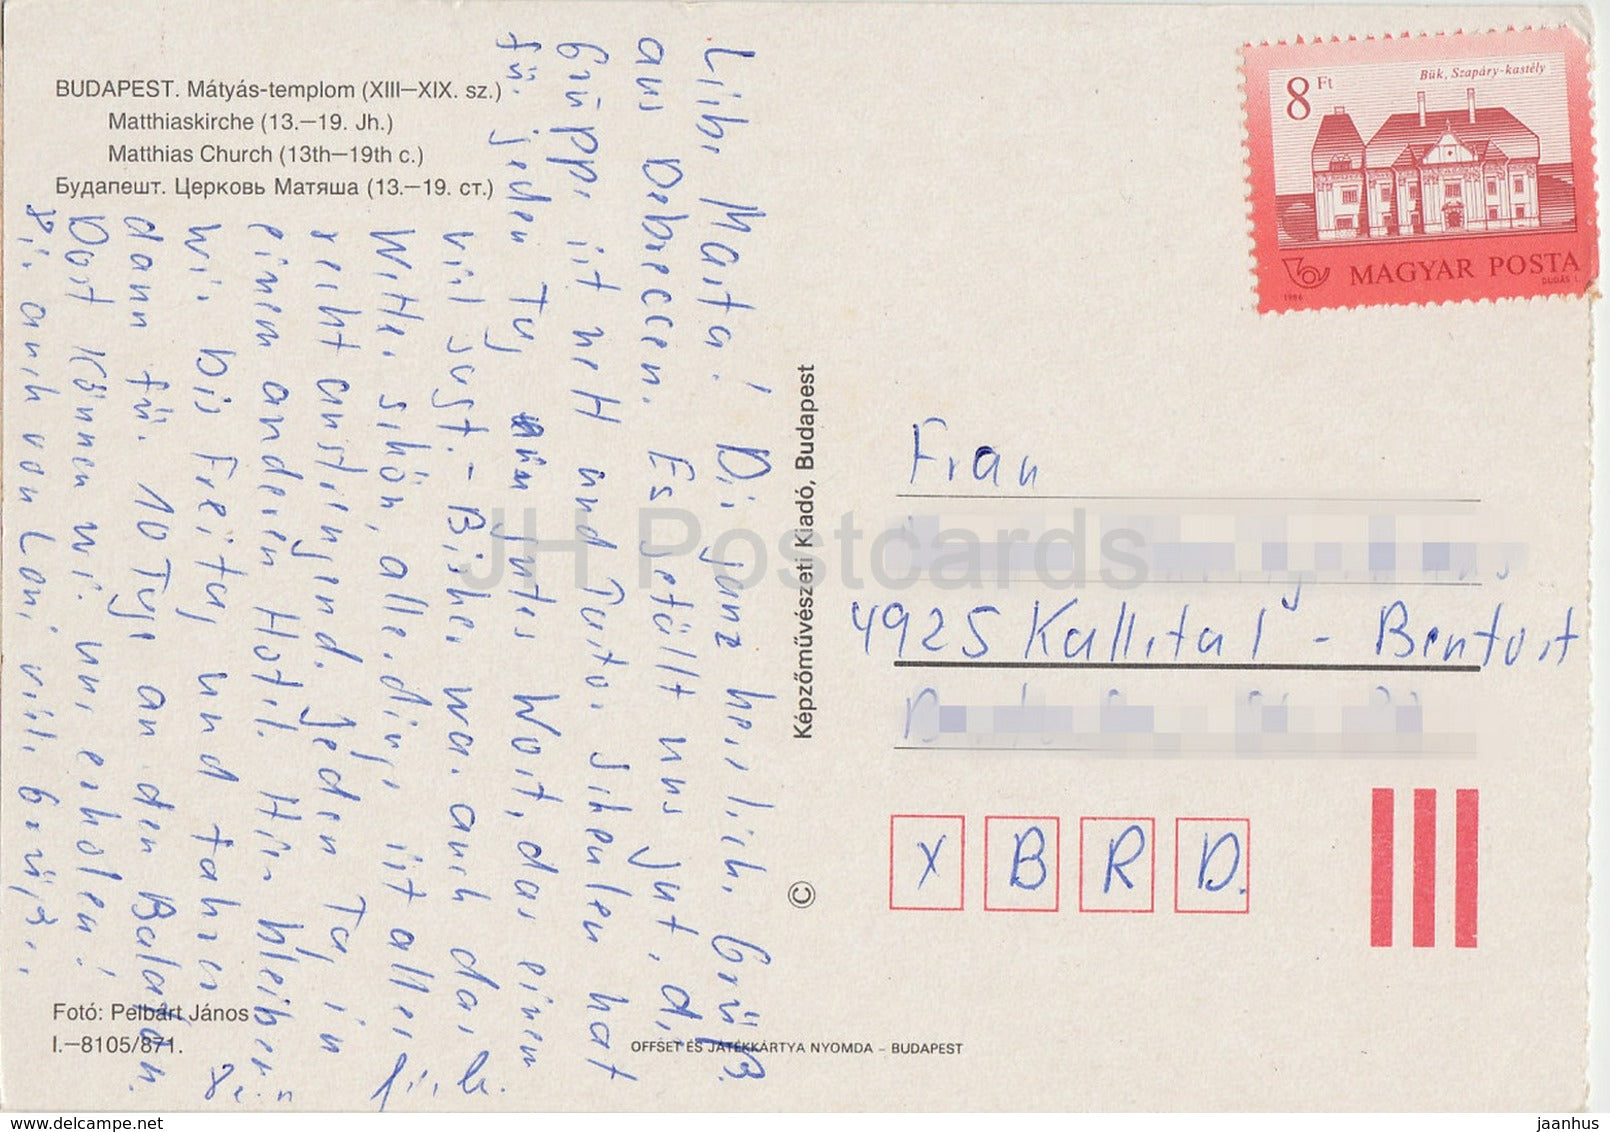 BUDAPEST. Mátyás-templom (XIII–XIX. sz.)
Matthiaskirche (13.–19. Jh.)
Matthias Church (13th–19th c.)
Будапешт. Церковь Матяша (13.–19. ст.)
Liebe Marta! Dir ganz herzlich. Grüße
aus Debrecen. Es gefällt uns gut, die
Gruppe ist nett und Pastor Scheulen hat
für jeden Tag ein gutes Wort, das einem
viel sagt. - Bisher war auch das
Wetter schön, allerdings ist alles
recht anstrengend. Jeden Tag in
einem anderen Hotel. Hier bleiben
wir bis Freitag und fahren
dann für 10 Tage an den Balaton.
Dort können wir uns erholen!
Dir auch von Loni viele Grüße,
Fotó: Pelbárt János
I.–8105/871.
© Képzőművészeti Kiadó, Budapest
OFFSET ÉS JÁTÉKKÁRTYA NYOMDA – BUDAPEST
8 Ft
Bük, Szapáry-kastély
1986
MAGYAR POSTA
DUDÁS L.
Frau
4925 Kalletal - Bentorf
X B R D.
JH Postcards
www.delcampe.net
jaanhus